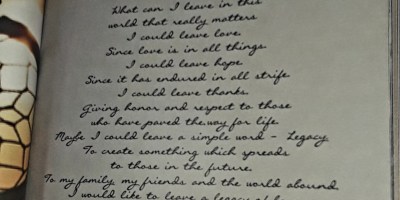 What can I leave in this
world that really matters
I could leave love.
Since love is in all things.
I could leave hope
Since it has endured in all strife
I could leave thanks.
Giving honor and respect to those
who have paved the way for life
Maybe I could leave a simple word - Legacy
To create something which spreads
to those in the future.
To my family, my friends and the world abound
I would like to leave a legacy of